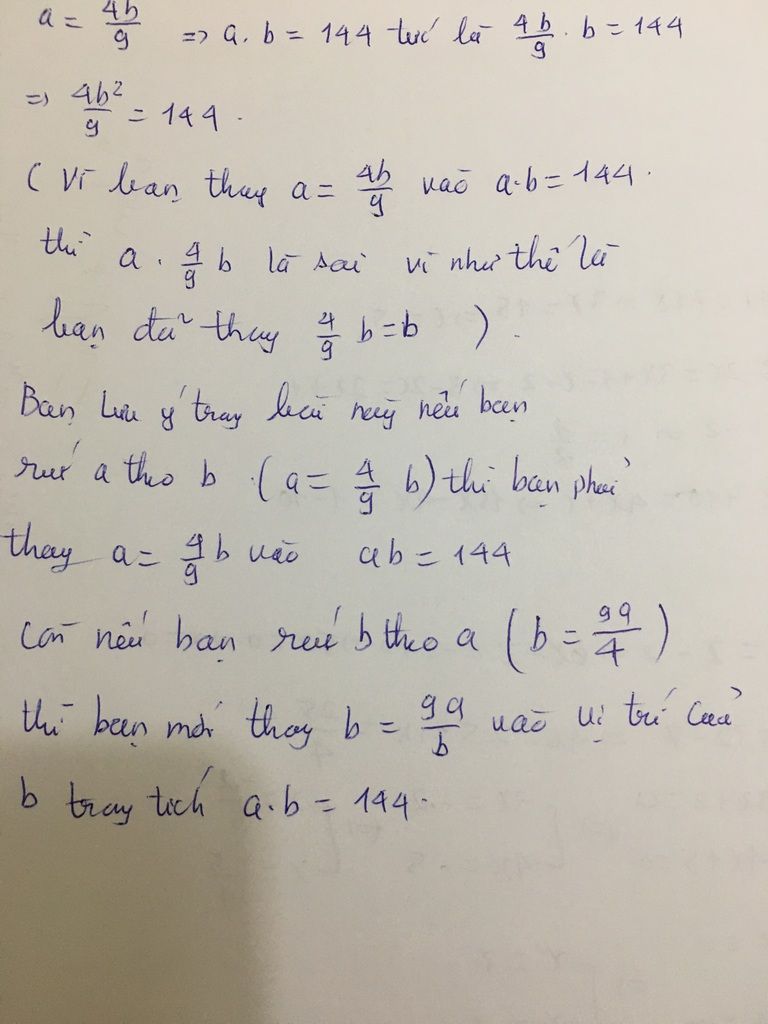 a = 4b/9 => a. b = 144 tức là 4b/9 . b = 144
=> 4b²/9 = 144.
( Vì bạn thay a = 4b/9 vào a.b = 144.
thì a . 4/9 b là sai vì như thế là
bạn đã thay 4/9 b = b ).
Bạn Lưu ý trong bài này nếu bạn
rút a theo b (a = 4/9 b) thì bạn phải
thay a = 4/9 b vào ab = 144
Còn nếu bạn rút b theo a (b = 9a/4)
thì bạn mới thay b = 9a/b vào vị trí của
b trong tích a.b = 144.